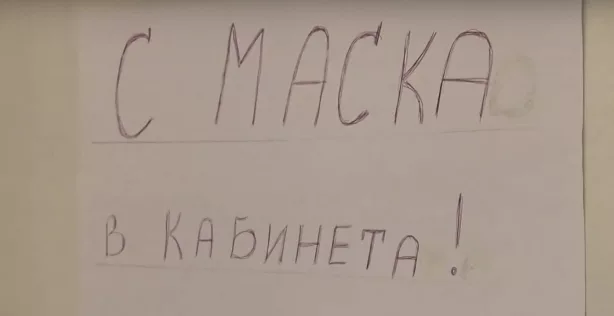 С МАСКА
В КАБИНЕТА!